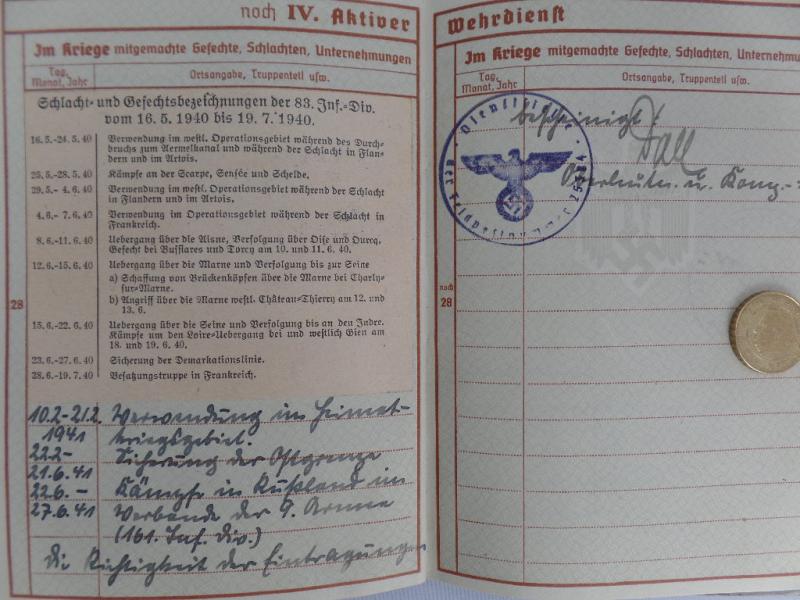 noch IV. Aktiver
Im Kriege mitgemachte Gefechte, Schlachten, Unternehmungen
Tag, Monat, Jahr
Ortsangabe, Truppenteil usw.
Schlacht- und Gefechtsbezeichnungen der 83. Inf.-Div.
vom 16. 5. 1940 bis 19. 7. 1940.
16.5.-24.5. 40 Verwendung im westl. Operationsgebiet während des Durch-
bruchs zum Aermelkanal und während der Schlacht in Flan-
dern und im Artois.
25.5.-28.5. 40 Kämpfe an der Scarpe, Sensée und Schelde.
29.5.- 4.6. 40 Verwendung im westl. Operationsgebiet während der Schlacht
in Flandern und im Artois.
4.6.- 7.6. 40 Verwendung im Operationsgebiet während der Schlacht in
Frankreich.
8.6.-11.6. 40 Uebergang über die Aisne, Verfolgung über Oise und Ourcq,
Gefecht bei Bussiares und Torcy am 10. und 11. 6. 40.
12.6.-15.6. 40 Uebergang über die Marne und Verfolgung bis zur Seine
a) Schaffung von Brückenköpfen über die Marne bei Charly-
sur-Marne.
b) Angriff über die Marne westl. Château-Thierry am 12. und
13. 6.
15.6.-22.6. 40 Uebergang über die Seine und Verfolgung bis an den Indre.
Kämpfe um den Loire-Uebergang bei und westlich Gien am
18. und 19. 6. 40.
23.6.-27.6. 40 Sicherung der Demarkationslinie.
28.6.-19.7. 40 Besatzungstruppe in Frankreich.
28
10.2.-21.2. Verwendung im Heimat-
1941 kriegsgebiet.
22.2.- Sicherung der Ostgrenze
21.6.41
22.6.- Kämpfe in Rußland im
27.6.41 Verbande der 9. Armee
(161. Inf. Div.)
Die Richtigkeit der Eintragungen
Wehrdienst
Im Kriege mitgemachte Gefechte, Schlachten, Unternehmu
Tag, Monat, Jahr
Ortsangabe, Truppenteil usw.
bescheinigt:
Oberleutn. u. Komp.-
Dienststelle
der Feldpostnummer
noch
28